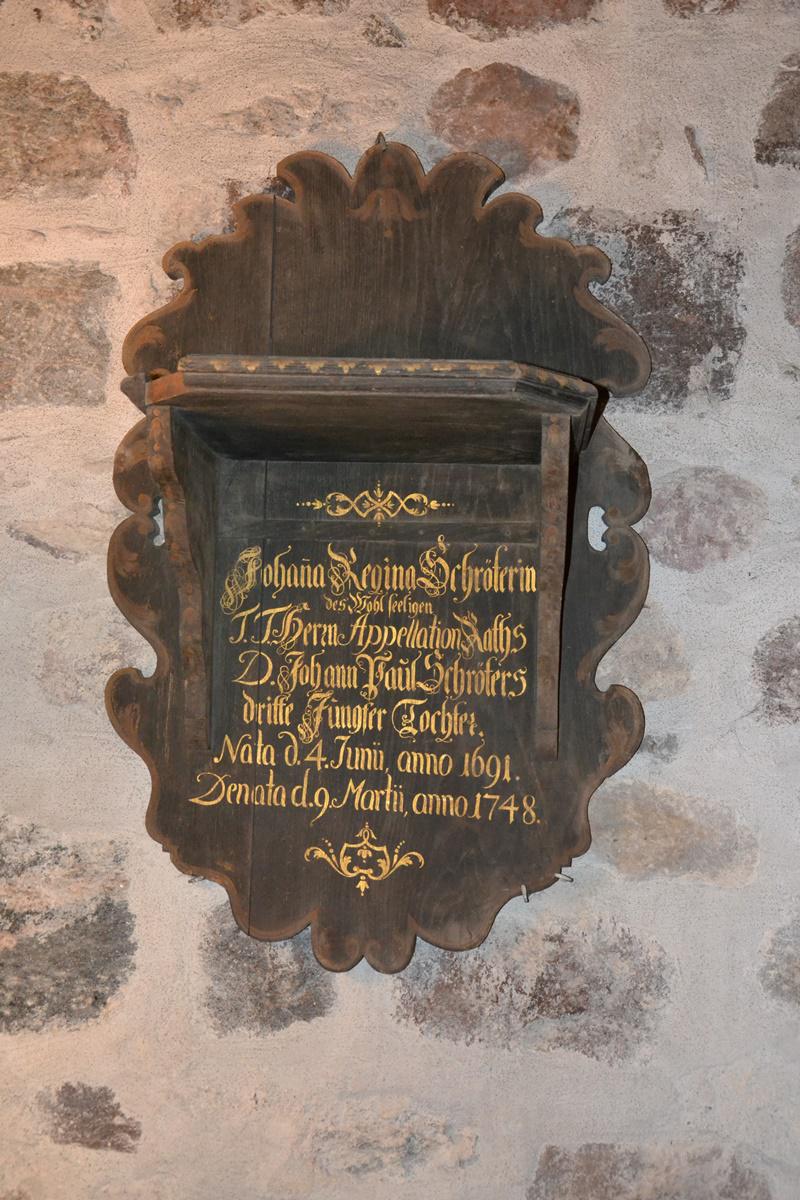 Johan̄a Regina Schröterin
des Wohl seeligen
T. T. Herrn Appellation Raths
D. Johann Paul Schröters
dritte Jungfer Tochter.
Nata d. 4. Junii, anno 1691.
Denata d. 9. Martii, anno 1748.